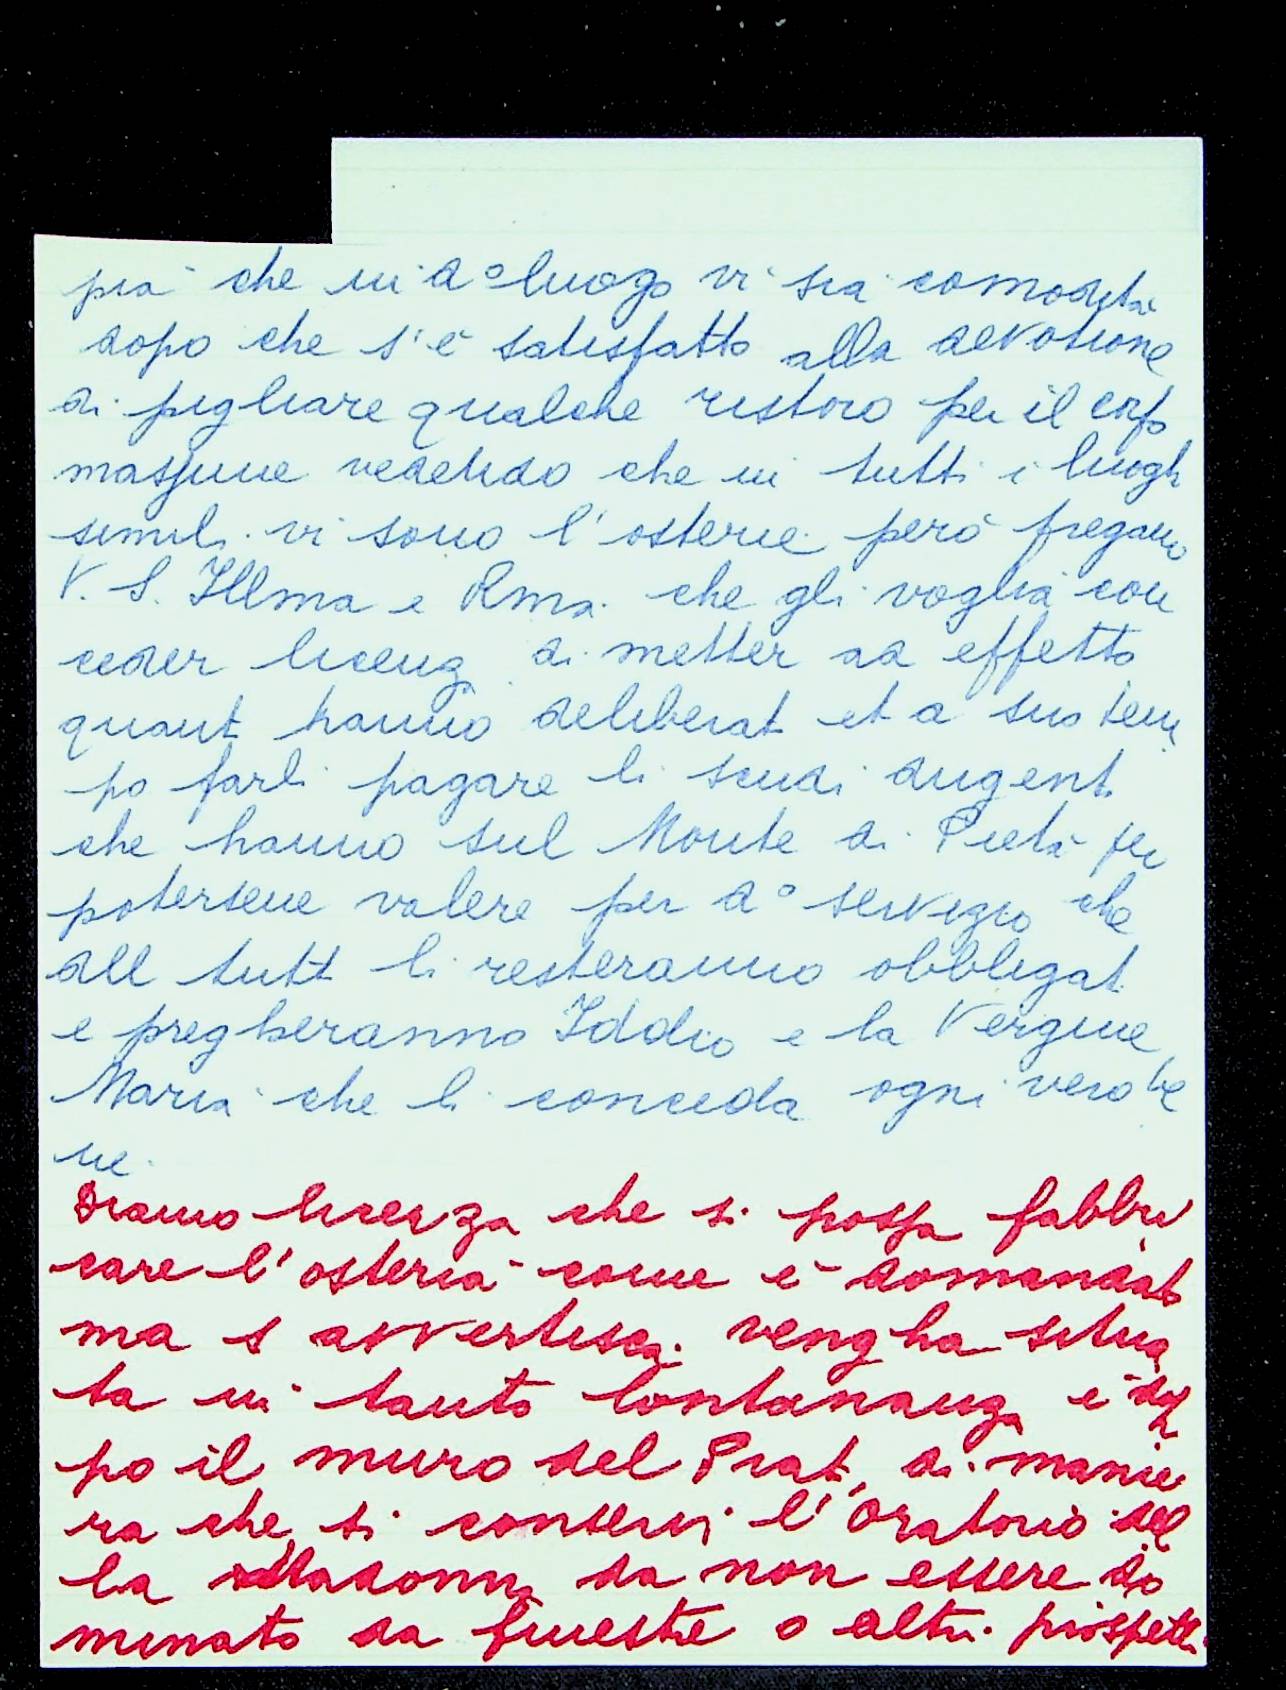 pia che in d° luogo vi sia comodità
dopo che s'è satisfatto alla devotione
di pigliare qualche ristoro per il corpo
massime vedendo che in tutti i luogh
simili vi sono l'osterie però pregano
V. S. Illma e Rma. che gli voglia con
ceder licenz di metter ad effetto
quant hanno deliberat et a suo tem
po farli pagare li scudi dugent
che hanno sul Monte di Pietà per
potersene valere per d° servizio che
dll tutt li resteranno obbligat
e pregheranno Iddio e la Vergine
Maria che li conceda ogni vero be
ne.
Diamo licenza che si possa fabbri
care l'osteria come è domandato
ma s avvertisca. vengha situa
ta in tanto lontananza e
po il muro del Prat, di manie
ra che si conservi l'Oratorio del
la Madonna da non essere do
minato da finestre o altri prospetti.